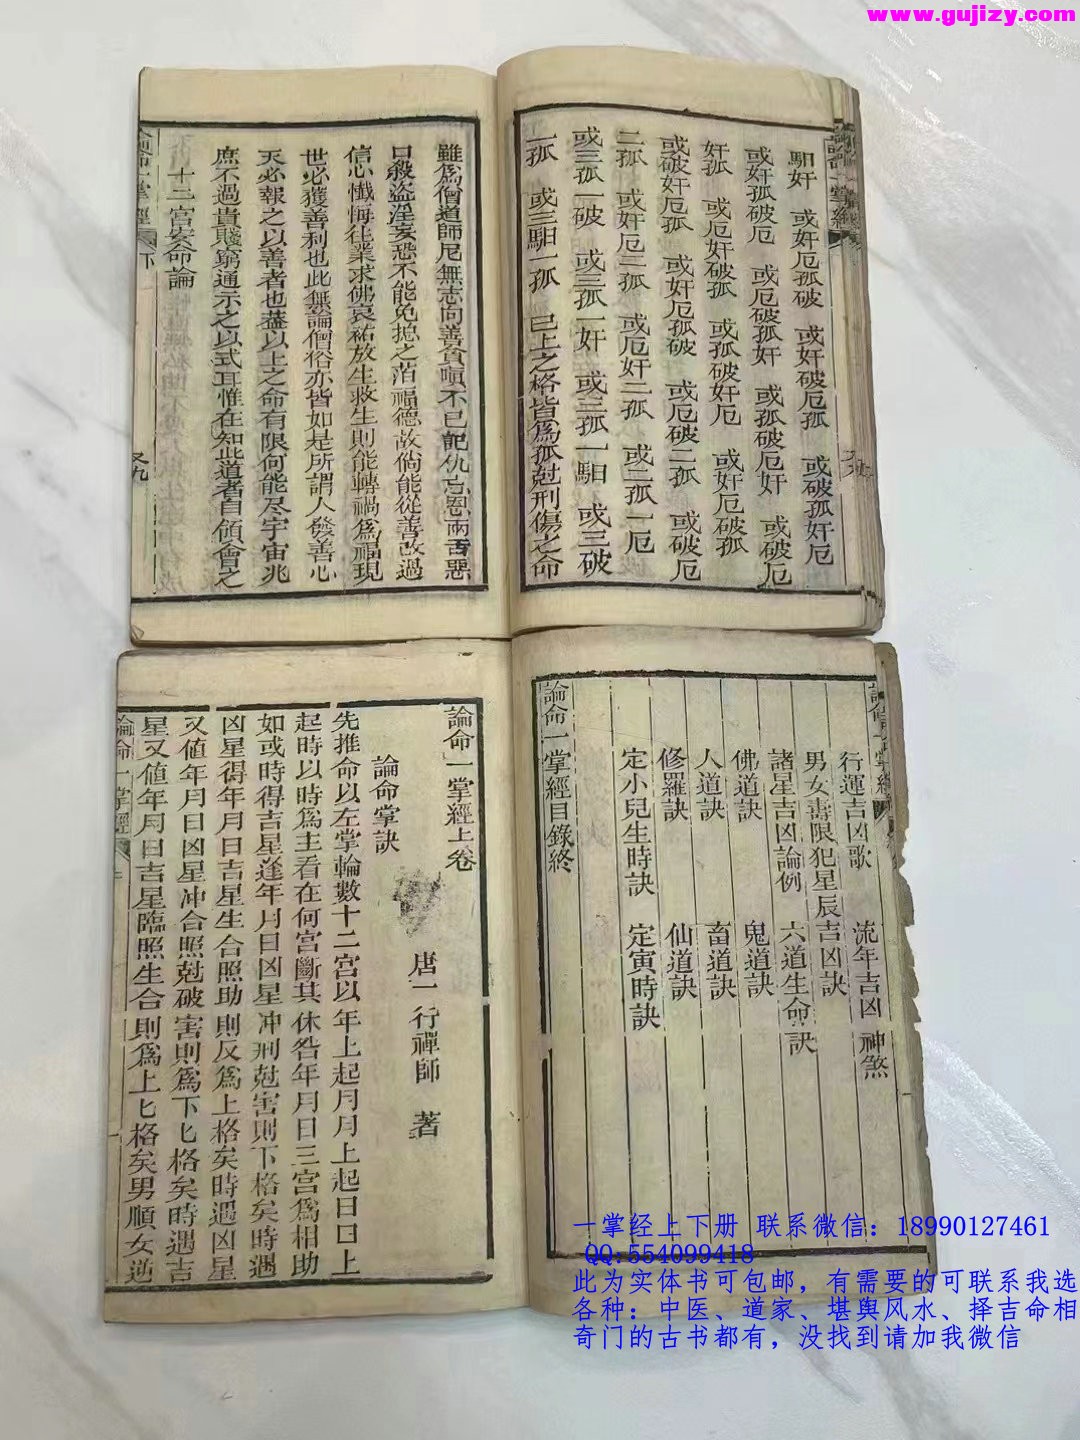 www.gujizy.com
論命一掌經
駔奸 或奸厄孤破 或奸破厄孤 或破孤奸厄
或奸孤破厄 或厄破孤奸 或孤破厄奸 或破厄
奸孤 或厄奸破孤 或孤破奸厄 或奸厄破孤
或破奸厄孤 或奸厄孤破 或厄破二孤 或破厄
二孤 或奸厄二孤 或厄奸二孤 或二孤一厄
或三孤一破 或三孤一奸 或三孤一駔 或三破
一孤 或三駔一孤 已上之格皆為孤尅刑傷之命
雖為僧道師尼無志向善貪嗔不已記仇忘恩兩舌惡
口殺盜淫妄恐不能免抱之渞福德故倘能從善改過
信心懺悔往業求佛哀祐放生救生則能轉禍為福現
世必獲善利也此無論僧俗亦皆如是所謂人發善心
天必報之以善者也蓋以上之命有限何能尽宇宙兆
庶不過貴賤窮通示之以式耳惟在知此道者自領會之
十二宮安命論
論命一掌經 下 又九
行運吉凶歌 流年吉凶神煞
男女壽限犯星辰吉凶訣
諸星吉凶論例 六道生命訣
佛道訣 鬼道訣
人道訣 畜道訣
修羅訣 仙道訣
定小兒生時訣 定寅時訣
論命一掌經目錄終
論命一掌經上卷
唐一行禪師 著
論命掌訣
先推命以左掌輪數十二宮以年上起月月上起日日上
起時以時為主看在何宮斷其休咎年月日三宮為相助
如或時得吉星逢年月日凶星冲刑尅害則下格矣時遇
凶星得年月日吉星生合照助則反為上格矣時遇凶星
又值年月日凶星冲合照尅破害則為下七格矣時遇吉
星又值年月日吉星臨照生合則為上七格矣男順女逆
論命一掌經
一掌经上下册 联系微信：18990127461
QQ:554099418
此为实体书可包邮，有需要的可联系我选
各种：中医、道家、堪舆风水、择吉命相
奇门的古书都有，没找到请加我微信